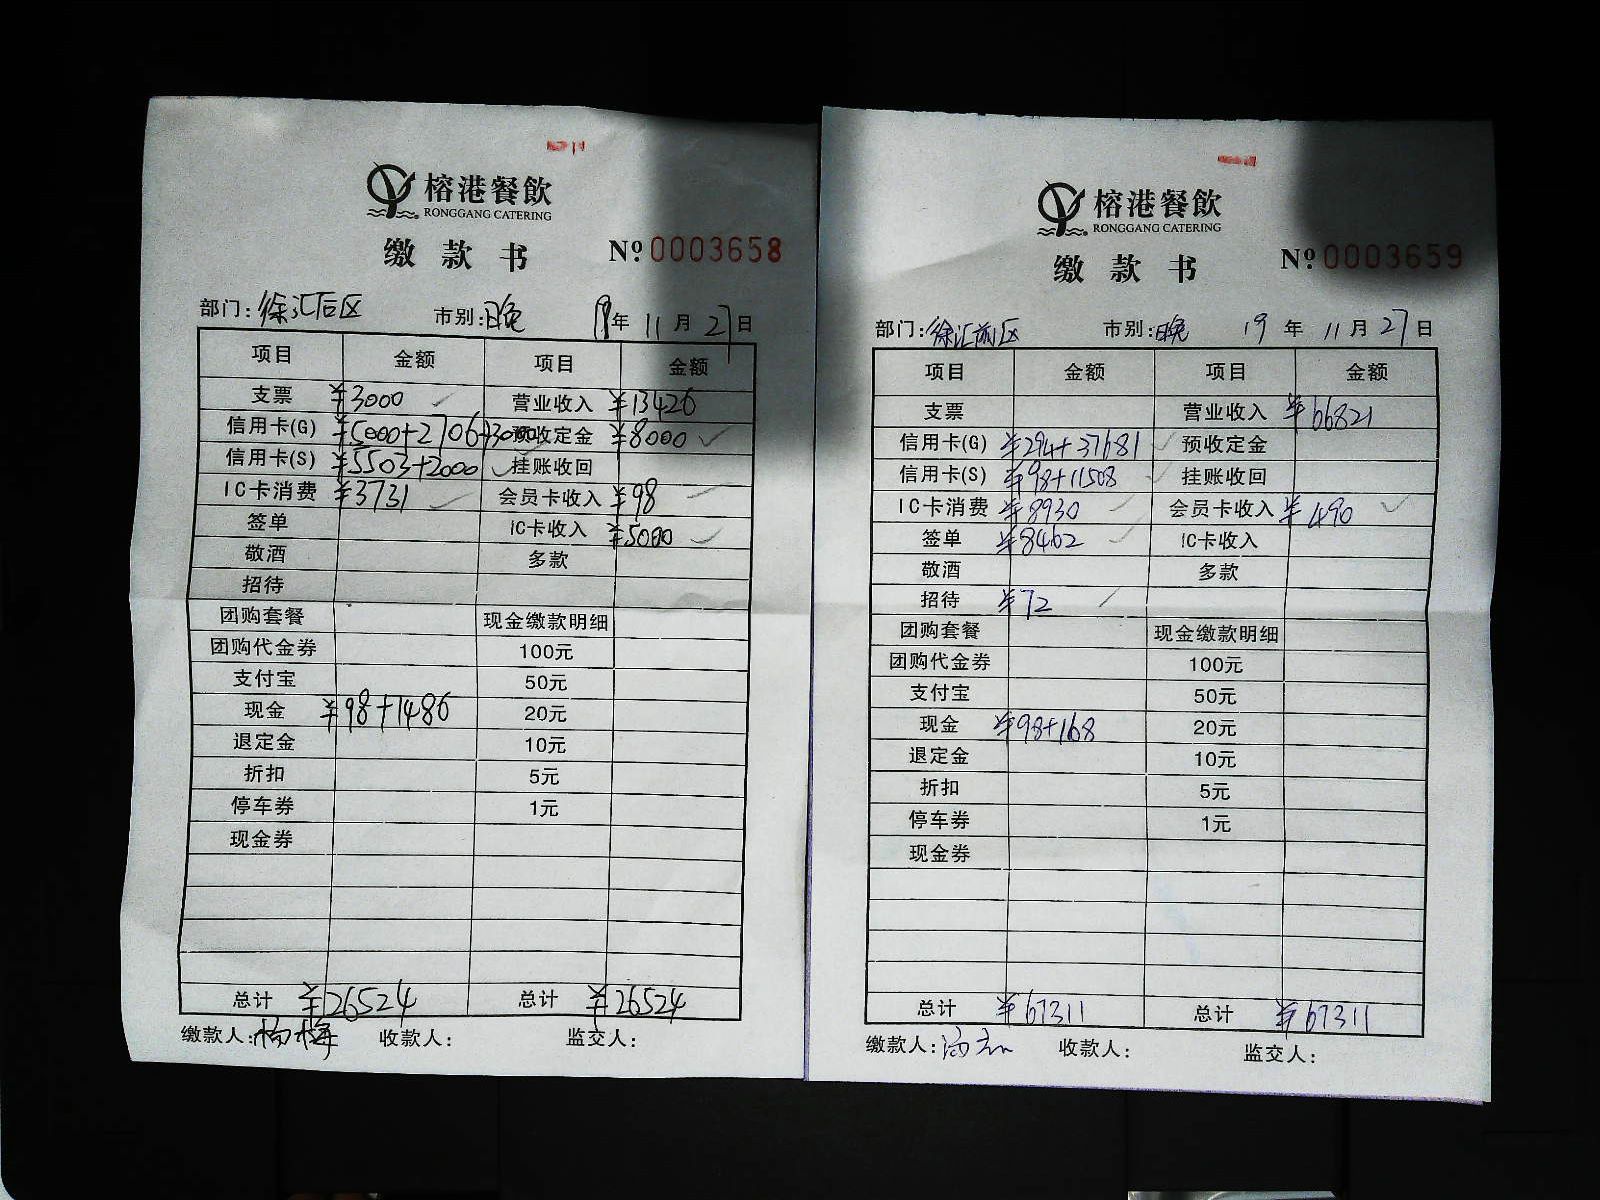 榕港餐飲
RONGGANG CATERING
缴款书 Nº 0003658
部门: 徐汇后区 市别: 晚 19年 11月 27日
项目 金额 项目 金额
支票 ¥3000 营业收入 ¥13426
信用卡(G) ¥5000+2706+3000 预收定金 ¥8000
信用卡(S) ¥5503+2000 挂账收回
IC卡消费 ¥3731 会员卡收入 ¥98
签单 IC卡收入 ¥5000
敬酒 多款
招待
团购套餐 现金缴款明细
团购代金券 100元
支付宝 50元
现金 ¥98+1486 20元
退定金 10元
折扣 5元
停车券 1元
现金券
总计 ¥26524 总计 ¥26524
缴款人: 杨梅 收款人: 监交人:
榕港餐飲
RONGGANG CATERING
缴款书 Nº 0003659
部门: 徐汇前区 市别: 晚 19年 11月 27日
项目 金额 项目 金额
支票 营业收入 ¥66821
信用卡(G) ¥294+37681 预收定金
信用卡(S) ¥98+11508 挂账收回
IC卡消费 ¥8930 会员卡收入 ¥490
签单 ¥8462 IC卡收入
敬酒 多款
招待 ¥72
团购套餐 现金缴款明细
团购代金券 100元
支付宝 50元
现金 ¥98+168 20元
退定金 10元
折扣 5元
停车券 1元
现金券
总计 ¥67311 总计 ¥67311
缴款人: 收款人: 监交人: